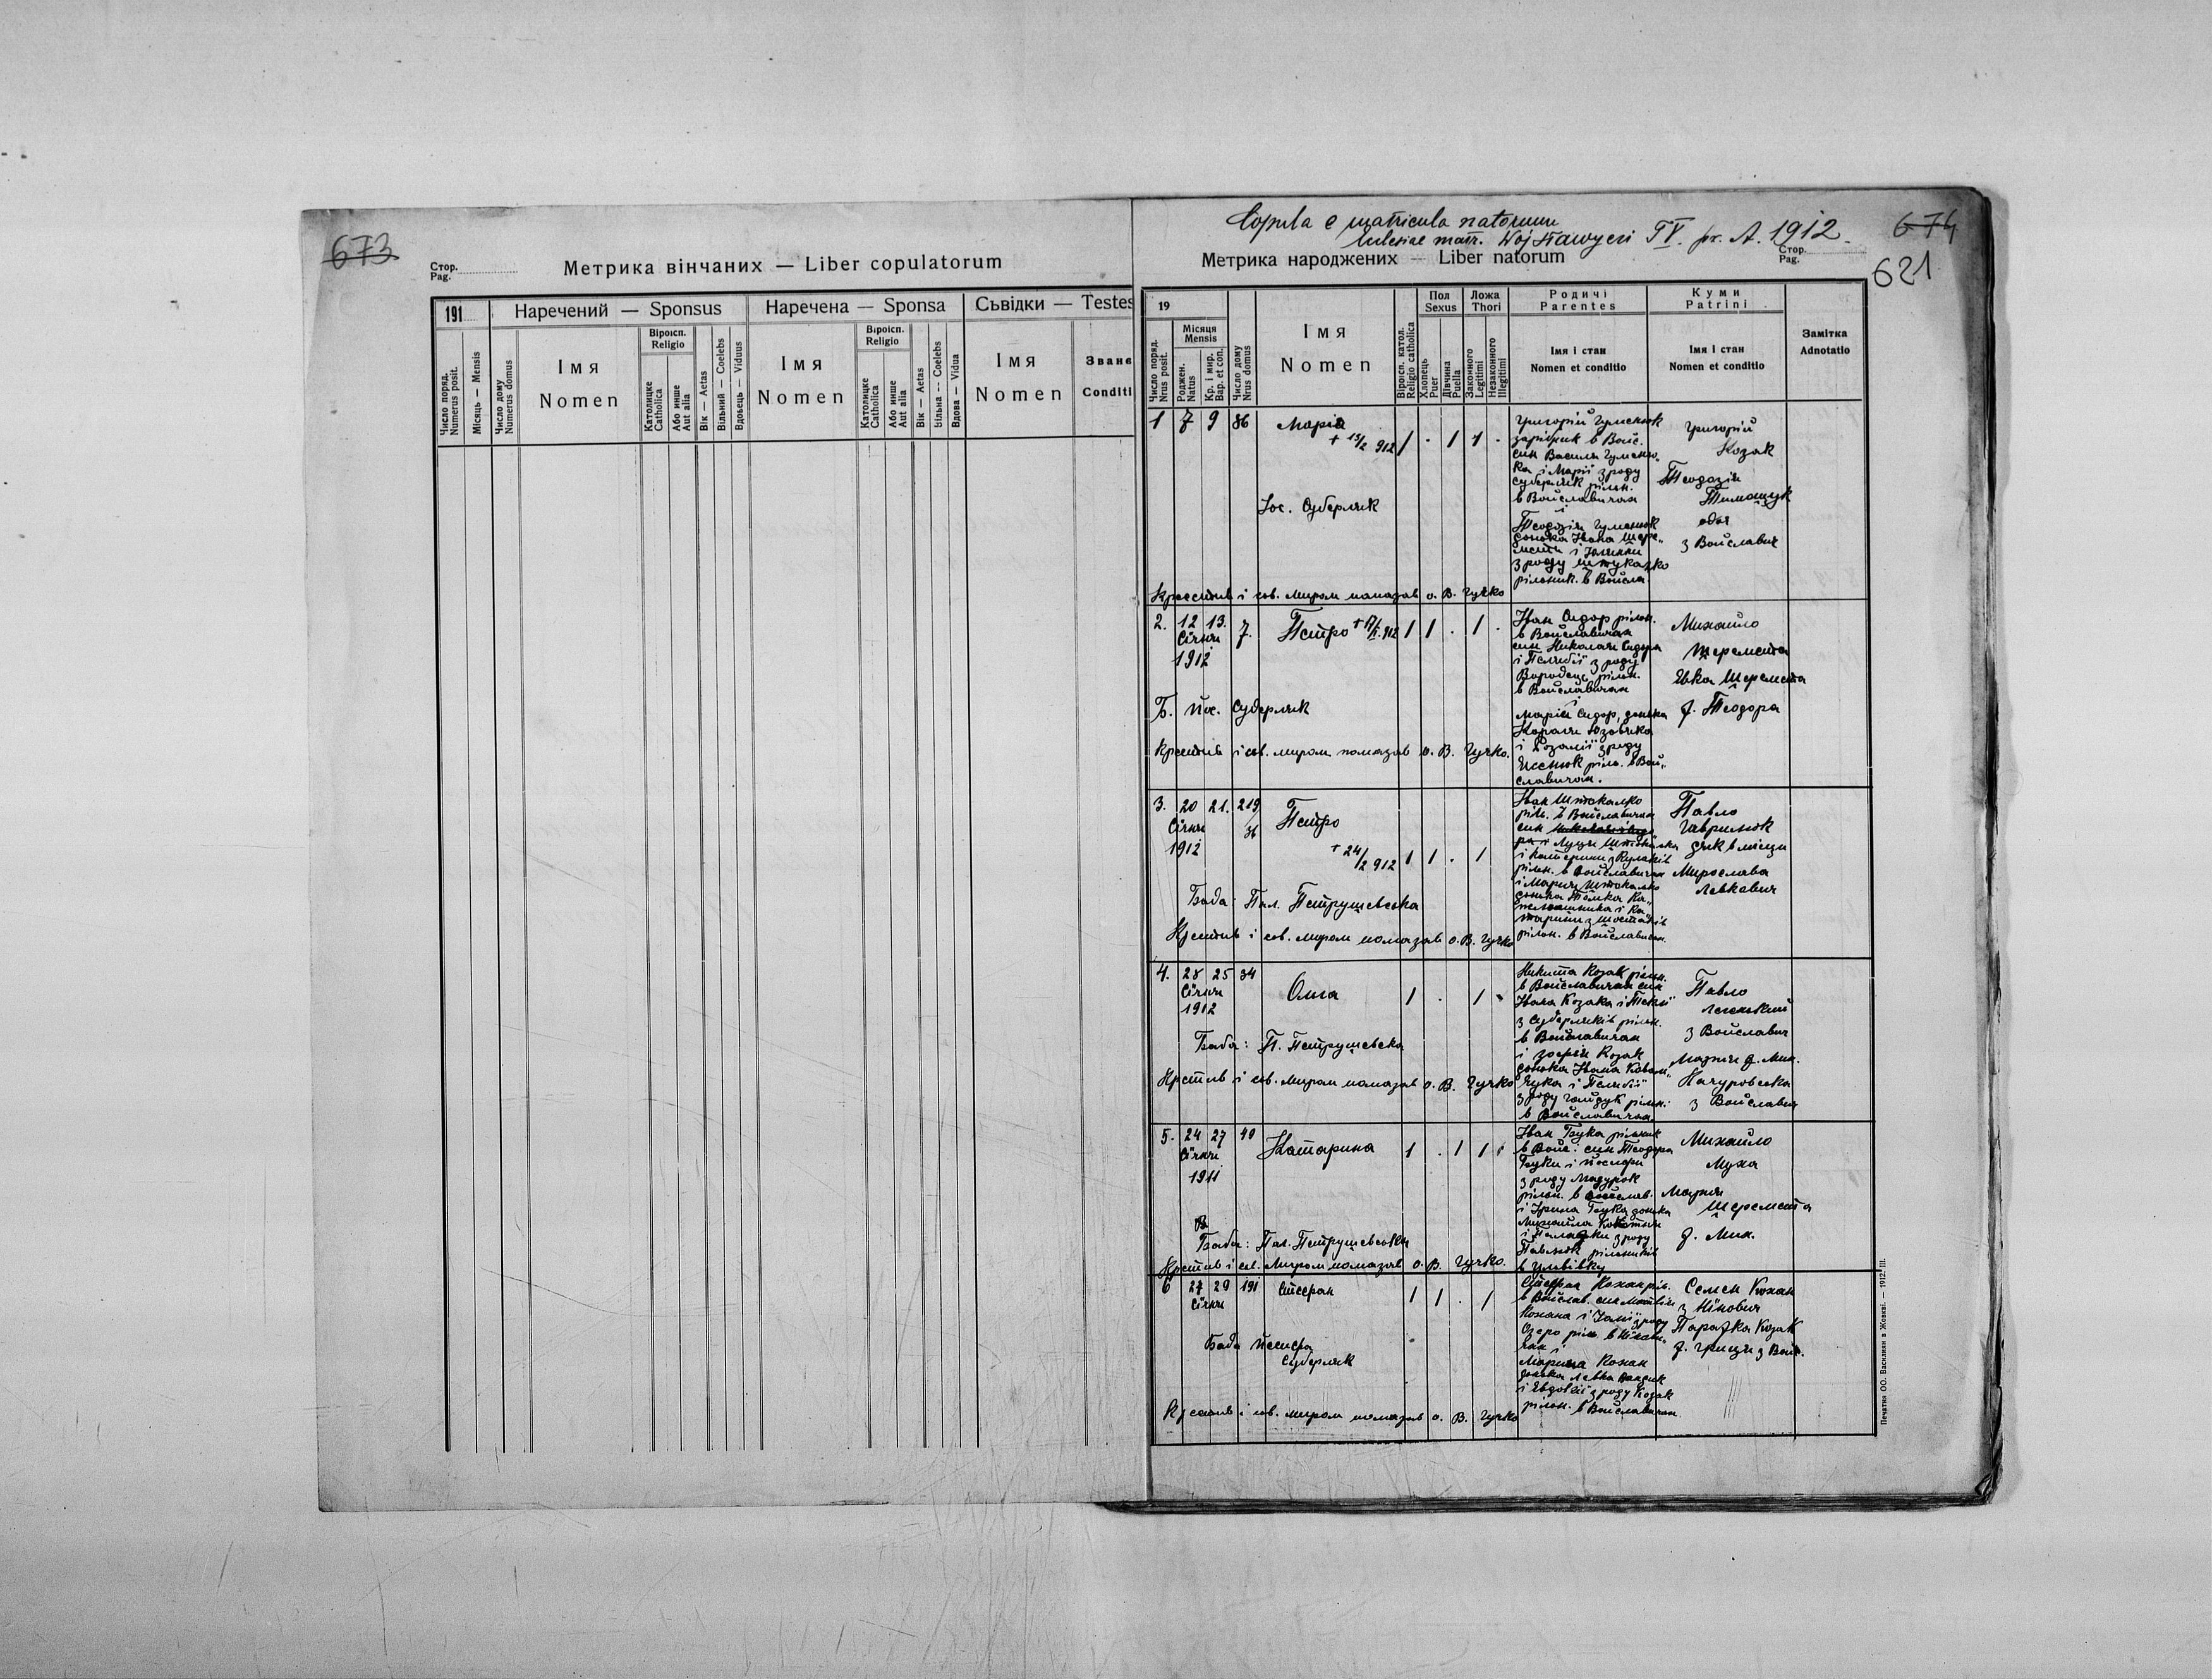 673
Стор.
Pag.
Метрика вінчаних — Liber copulatorum
191
Наречений — Sponsus
Наречена — Sponsa
Сьвідки — Testes
Число поряд.
Numerus posit.
Місяць — Mensis
Число дому
Numerus domus
Імя
Nomen
Віроісп.
Religio
Католицке
Catholica
Або инше
Aut alia
Вік — Aetas
Вільний — Coelebs
Вдовець — Viduus
Імя
Nomen
Віроісп.
Religio
Католицке
Catholica
Або инше
Aut alia
Вік — Aetas
Вільна — Coelebs
Вдова — Vidua
Імя
Nomen
Зване
Conditi
Copula e matricula natorum
matr. Wojsławyci pr. A. 1912.
674
Метрика народжених — Liber natorum
Стор.
Pag.
621
19
Число поряд.
Nrus posit.
Місяця
Mensis
Роджен.
Natus
Кр. і мир.
Bap. et con.
Число дому
Nrus domus
Імя
Nomen
Віроісп. катол.
Religio catholica
Пол
Sexus
Хлопець
Puer
Дівчина
Puella
Ложа
Thori
Законного
Legitimi
Незаконного
Illegitimi
Родичі
Parentes
Імя і стан
Nomen et conditio
Куми
Patrini
Імя і стан
Nomen et conditio
Замітка
Adnotatio
1 7 9 86 Марія 1 . 1 1 .
Йос. Суберляк
Григорій Гуменюк
зарібник в Войс.
син Василя Гуменю„
ка і Марії з роду
Суберляк рільн.
в Войславичах
і
Теодозія Гуменюк
донька Івана Шере„
мети і
з роду Штукалко
рільник. в Войсла.
Григорій
Козак
Теодозія
Тимощук
обоє
з Войславич
Крестив і св. миром помазав о. В. Гучко
2. 12 13. 7. Петро 1 1 . 1 .
Січня
1912
Б. Йос. Суберляк
Іван Сидор рільн.
в Войславичах
син Николая Сидора
і Пелаґії з роду
рільн.
в Войславичах
і
Марія Сидор, донька
і Розалії з роду
рільн. в Вой„
славичах.
Михайло
Шеремета
Евка Шеремета
ж. Теодора
Крестив і св. миром помазав о. В. Гучко.
3. 20 21. 219/36 Петро
Січня
1912
+ 24/2 912 1 1 . 1
Баба: Пел. Петрушевська
Іван Штокалко
рільн. в Войславичах
син
Луця Штокалка
і Катерини з
рільн. в Войславичах
і Марія Штокалко
донька
рільн. в Войславичах.
Павло
Гаврилюк
дяк в місци
Мирослава
Левкович
Крестив і св. миром помазав о. В. Гучко
4. 28 25 34 Ольга 1 . 1
Січня
1912
Баба: П. Петрушевска
Никита Козак рільн.
в Войславичах син
Івана Козака і Теклї
з Суберляків рільн.
в Войславичах
і Зофія Козак
донька Івана Коваль„
чука і Пелаґії
з роду Гайдук рільн.
в Войславичах
Павло
з Войславич
Марія ж. Мих.
з Войславич
Крестив і св. миром помазав о. В. Гучко
5. 24 27 40 Катарина 1 . 1 1
Січня
1911
Баба: Пел. Петрушевська
Іван Бука рільник
в Войс. син Теодора
Буки і
з роду
рільн. в Войслав.
і Ірина Бука донька
Михайла
і Пелагії з роду
рільників
Михайло
Муха
Марія
Шеремета
ж. Мих.
Крестив і св. Миром помазав о. В. Гучко.
6 27 29 191 Стефан 1 1 . 1
Січня
Баба
Суберляк
Стефан Кохан ріл.
в Войслав. син Матвія
Кохана і
Озеро ріл.
Марина Кохан
донька Левка
і Евдокії з роду Козак
рільн. в Войславичах
Семен Кохан
Параска Козак
ж. Гриця з Вой.
Крестив і св. миром помазав о. В. Гучко
Печатня ОО. Василиян в Жовкві. — 1912. III.